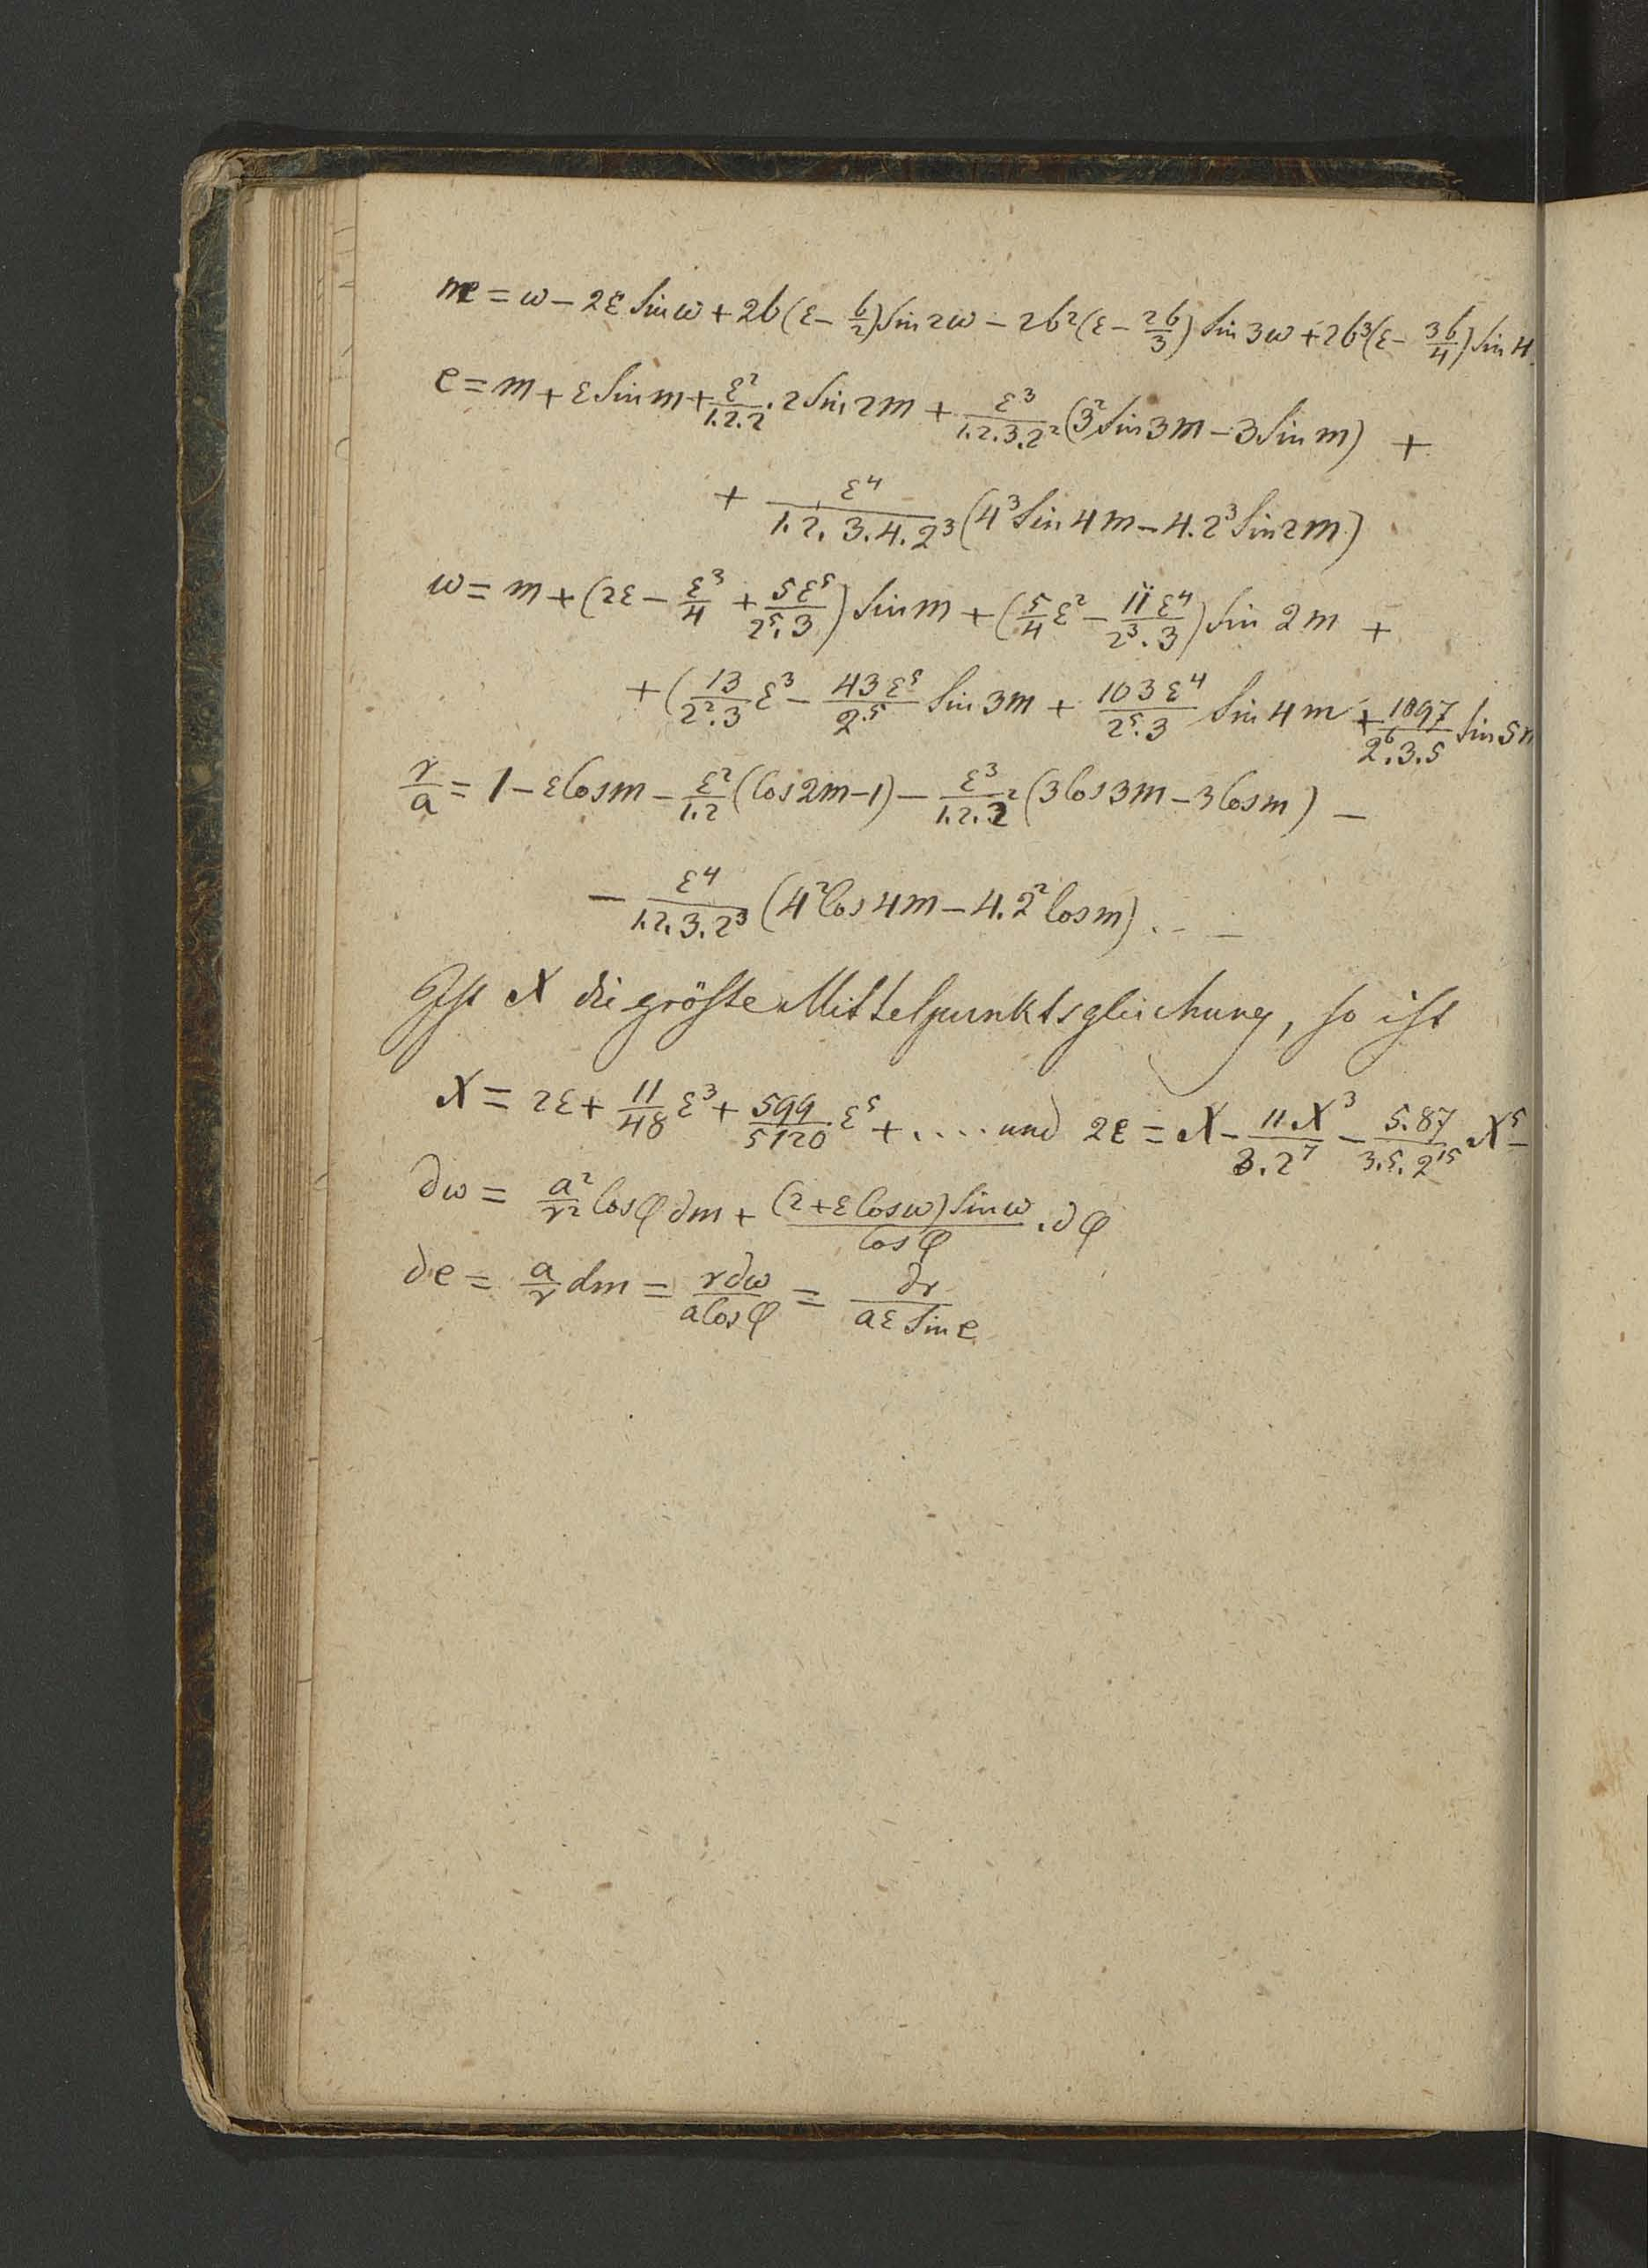 m = ω − 2ε Sin ω + 2b(ε − b/2) Sin 2ω − 2b²(ε − 2b/3) Sin 3ω + 2b³(ε − 3b/4) Sin 4
e = m + ε Sin m + ε²/1.2.2 . 2 Sin 2m + ε³/1.2.3.2² (3² Sin 3m − 3 Sin m) +
+ ε⁴/1.2.3.4.2³ (4³ Sin 4m − 4.2³ Sin 2m)
ω = m + (2ε − ε³/4 + 5ε⁵/2⁵.3) Sin m + (5/4 ε² − 11ε⁴/2³.3) Sin 2m +
+ (13/2².3 ε³ − 43ε⁵/2⁵ Sin 3m + 103ε⁴/2⁵.3 Sin 4m + 1097/2⁶.3.5 Sin 5m
r/a = 1 − ε Cos m − ε²/1.2 (Cos 2m − 1) − ε³/1.2.2² (3 Cos 3m − 3 Cos m) −
− ε⁴/1.2.3.2³ (4² Cos 4m − 4.2² Cos m) . . –
Ist X die größte Mittelpunktsgleichung, so ist
X = 2ε + 11/48 ε³ + 599/5120 ε⁵ + .... und 2ε = X − 11.X³/3.2⁷ − 5.87/3.5.2¹⁵ X⁵ −
∂ω = a²/r² Cos φ ∂m + (2 + ε Cos ω) Sin ω/Cos φ . ∂φ
∂e = a/r dm = r∂ω/a Cos φ = ∂r/aε Sin e